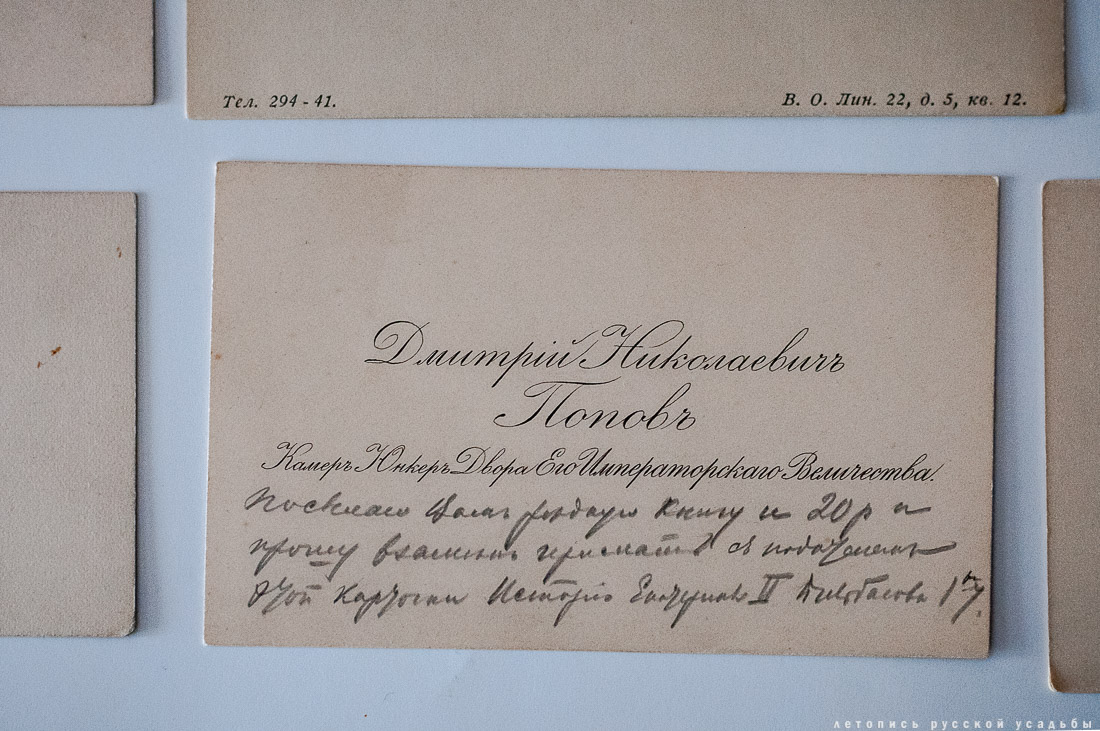 Тел. 294 - 41.
В. О. Лин. 22, д. 5, кв. 12.
Дмитрій Николаевичъ
Поповъ
Камеръ Юнкеръ Двора Его Императорскаго Величества.
Посылаю Вамъ книгу и 20 р и
прошу взаменъ съ подателемъ
этой карточки Исторію II Бильбасова 1
летопись русской усадьбы